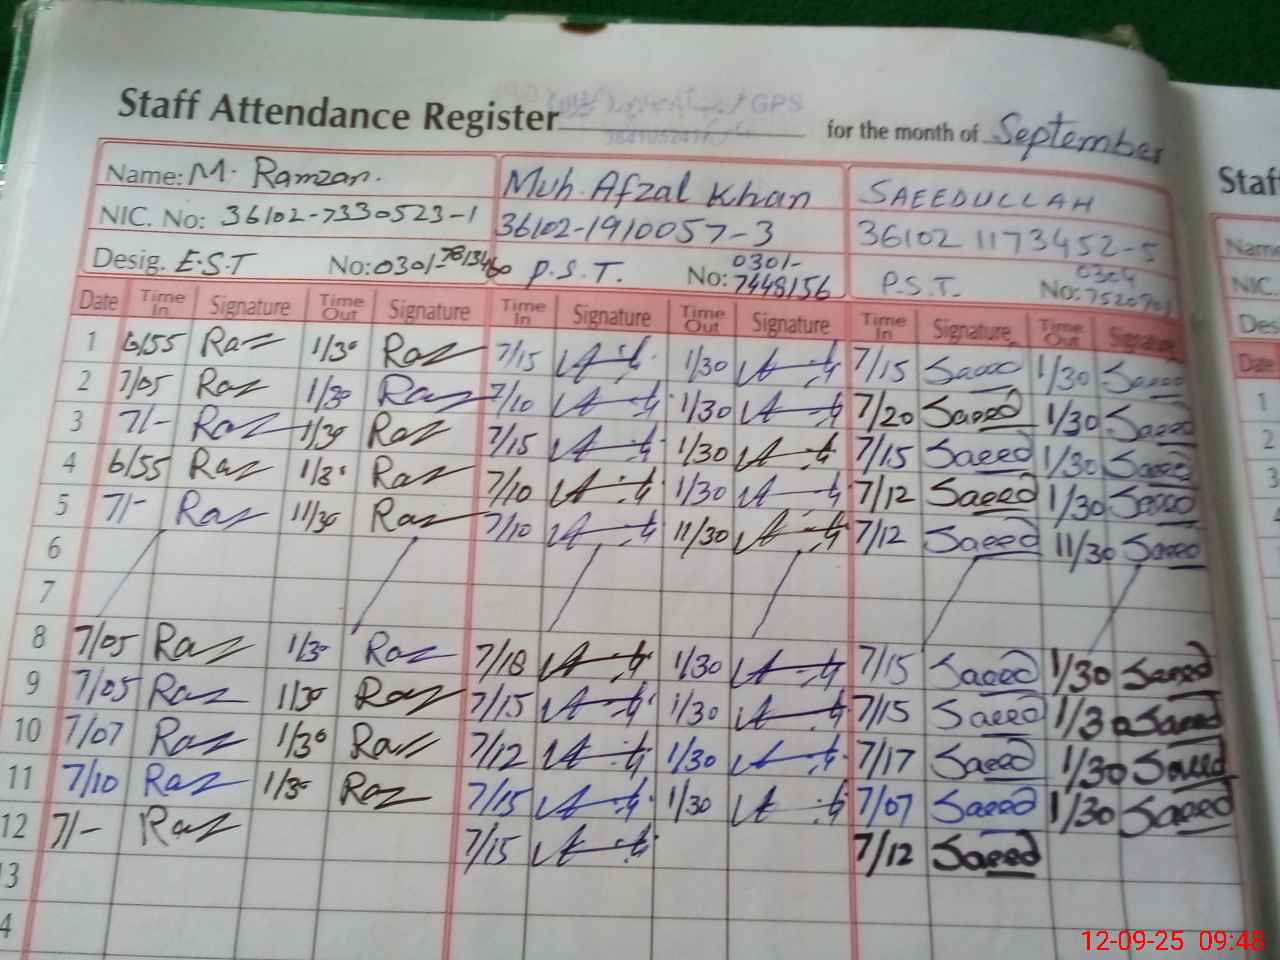 Staff Attendance Register GPS for the month of September
Name: M. Ramzan. Muh. Afzal Khan SAEEDULLAH
NIC. No: 36102-7330523-1 36102-1910057-3 36102 1173452-5
Desig. E.S.T No: P.S.T. No: 0301-7448156 P.S.T. No: 0304
Date Time In Signature Time Out Signature Time In Signature Time Out Signature Time In Signature Time Out Signature
1 6/55 Raz 1/30 Raz 7/15 1/30 7/15 Saeed 1/30 Saeed
2 7/05 Raz 1/30 Raz 7/10 1/30 7/20 Saeed 1/30 Saeed
3 7/- Raz 1/30 Raz 7/15 1/30 7/15 Saeed 1/30 Saeed
4 6/55 Raz 1/30 Raz 7/10 1/30 7/12 Saeed 1/30 Saeed
5 7/- Raz 11/30 Raz 7/10 11/30 7/12 Saeed 11/30 Saeed
6
7
8 7/05 Raz 1/30 Raz 7/18 1/30 7/15 Saeed 1/30 Saeed
9 7/05 Raz 1/30 Raz 7/15 1/30 7/15 Saeed 1/30 Saeed
10 7/07 Raz 1/30 Raz 7/12 1/30 7/17 Saeed 1/30 Saeed
11 7/10 Raz 1/30 Raz 7/15 1/30 7/07 Saeed 1/30 Saeed
12 7/- Raz 7/15 7/12 Saeed
13
Staff
NIC.
Date
1
2
3
12-09-25 09:48